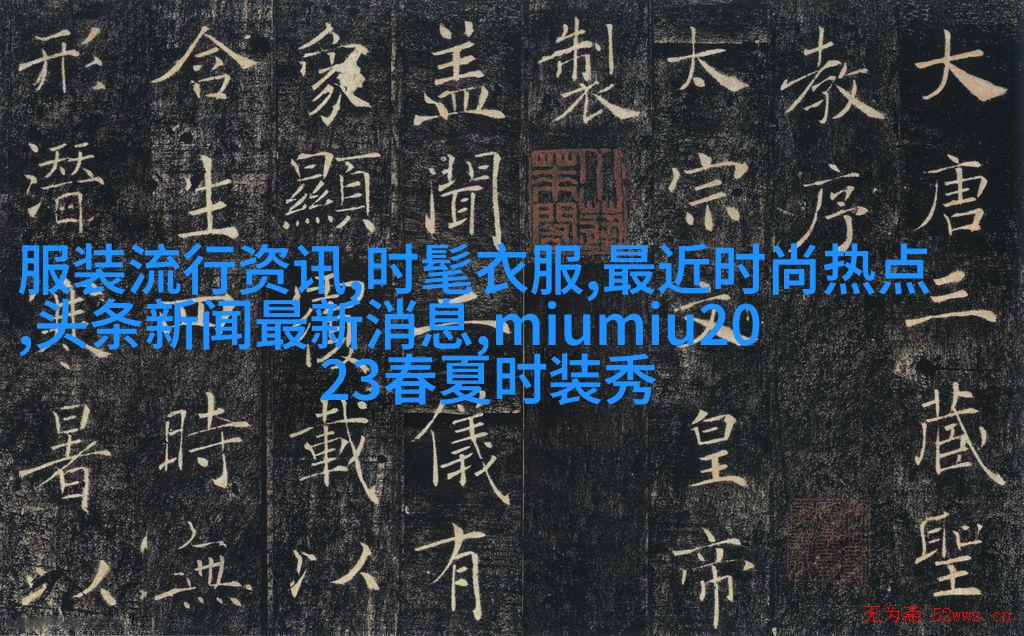 大唐三藏聖
教序
太宗文皇帝
製
盖聞二儀有
象顯覆載以
含生四時無
形潛寒暑以
服装流行资讯,时髦衣服,最近时尚热点
,头条新闻最新消息,miumiu20
23春夏时装秀
无为斋 52wwz.cn